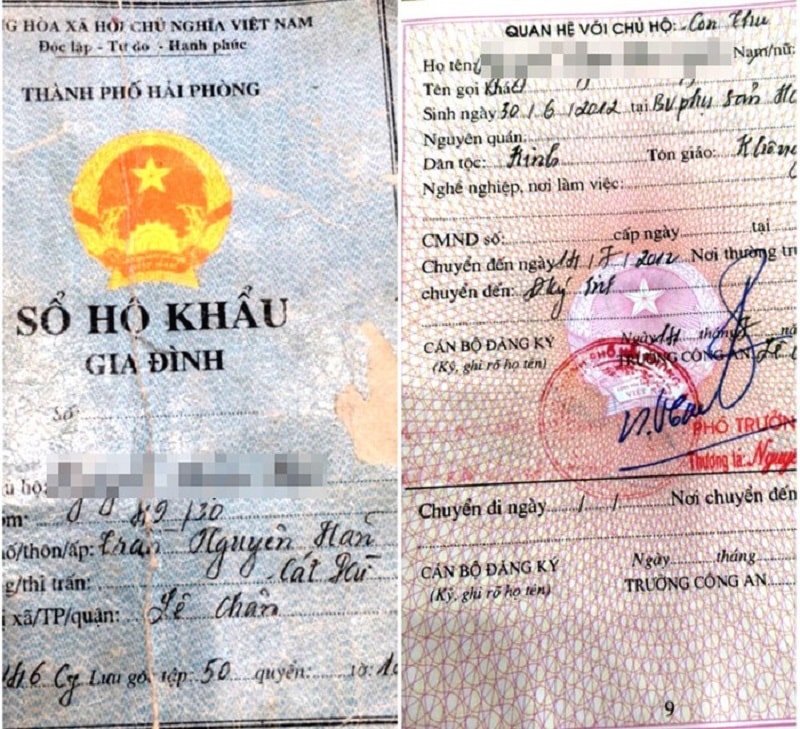 G HÒA XÃ HỘI CHỦ NGHĨA VIỆT NAM
Độc lập - Tự do - Hạnh phúc
THÀNH PHỐ HẢI PHÒNG
SỔ HỘ KHẨU
GIA ĐÌNH
Số
hộ:
49/30
ố/thôn/ấp: Trần Nguyên Hãn
g/thị trấn: Cát Dù
xã/TP/quận: Lê Chân
Lưu gốc, tập: 50 quyển: tờ:
QUAN HỆ VỚI CHỦ HỘ: Con
Họ tên Nam/nữ:
Tên gọi khác
Sinh ngày 30/6/2012 tại BV phụ sản
Nguyên quán:
Dân tộc: Kinh Tôn giáo: Không
Nghề nghiệp, nơi làm việc:
CMND số: cấp ngày tại
Chuyển đến ngày 14/7/2012 Nơi thường tr
chuyển đến: Đký
CÁN BỘ ĐĂNG KÝ Ngày 14 tháng 7
(Ký, ghi rõ họ tên) TRƯỞNG CÔNG AN
PHÓ TRƯỞN
Thượng tá: Nguy
Chuyển đi ngày / / Nơi chuyển đến
CÁN BỘ ĐĂNG KÝ Ngày tháng
(Ký, ghi rõ họ tên) TRƯỞNG CÔNG AN
9